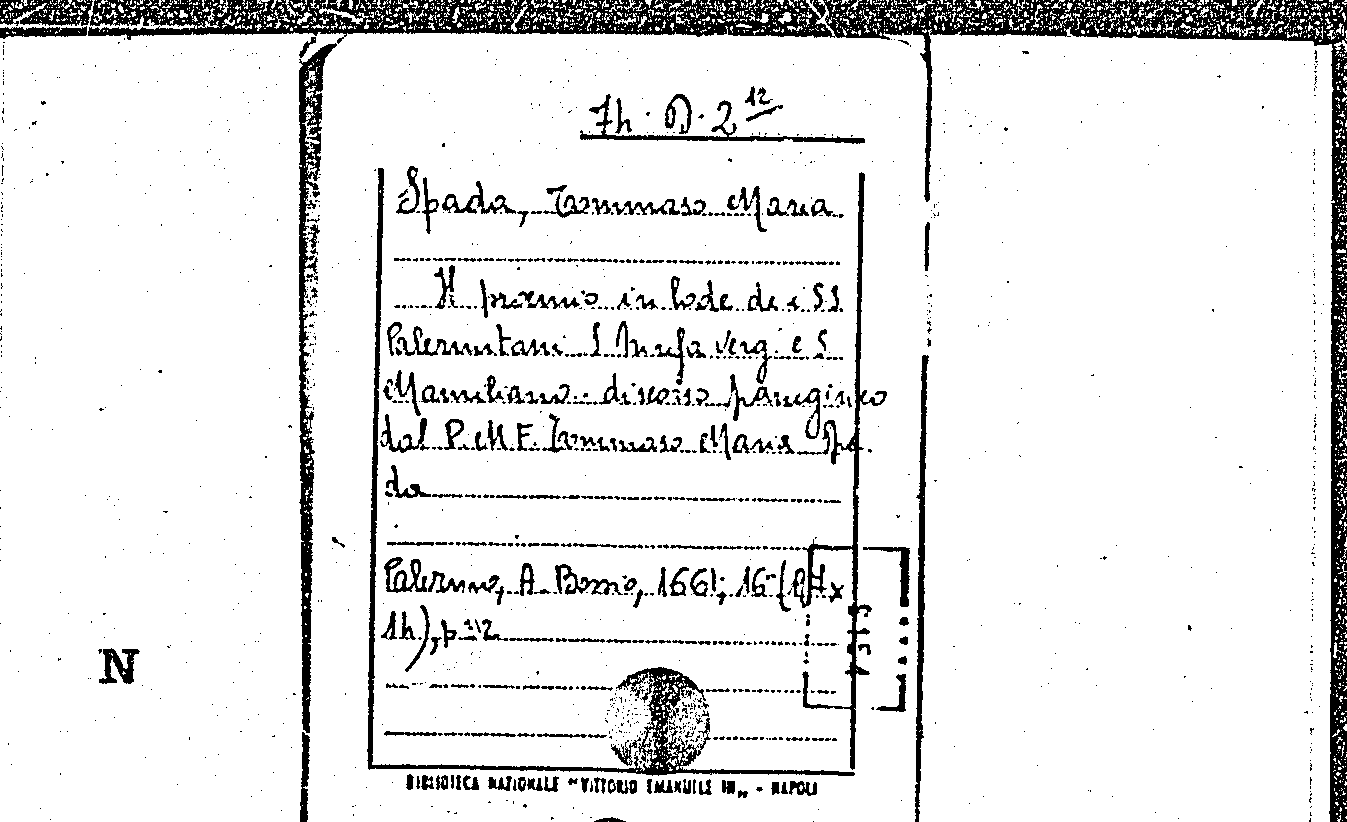 Th. D. 2 12
Spada, Tommaso Maria
Il premio in lode de i SS
Palermitani S Ninfa verg. e S.
Mamiliano. discorso panegirico
dal P. M. F. Tommaso Maria Spa
da
Palermo, A. Bossio, 1661; 16
p.
N
BIBLIOTECA NAZIONALE "VITTORIO EMANUELE III" - NAPOLI